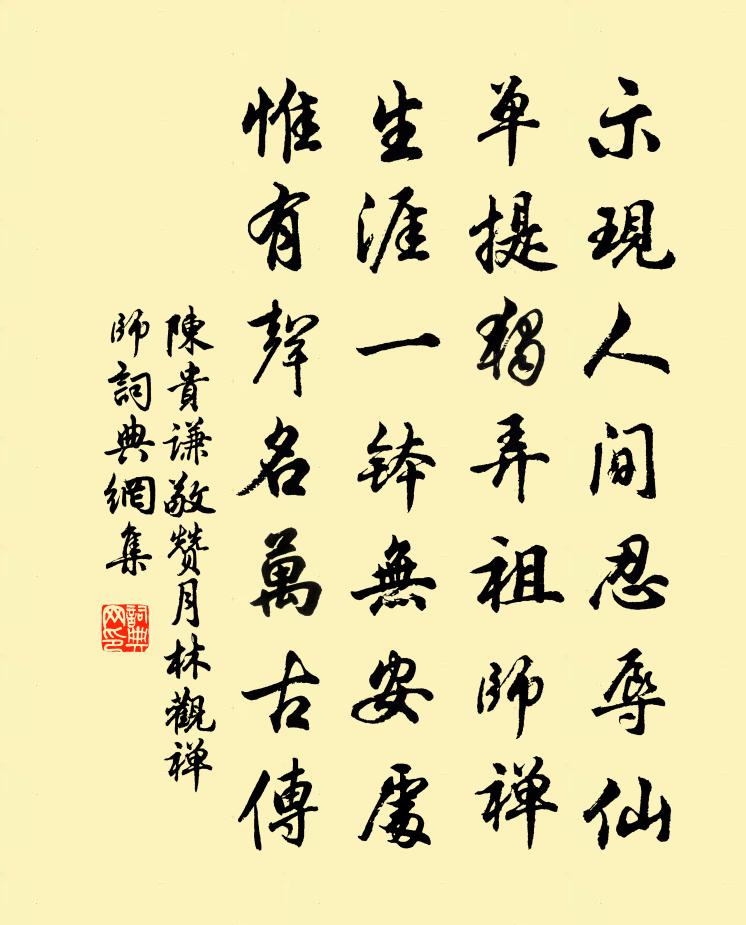 示現人间忍辱仙
单提獨弄祖師禅
生涯一鉢無安處
惟有聲名萬古傳
陳貴谦敬赞月林觀禅
師詞典網集
詞典網印